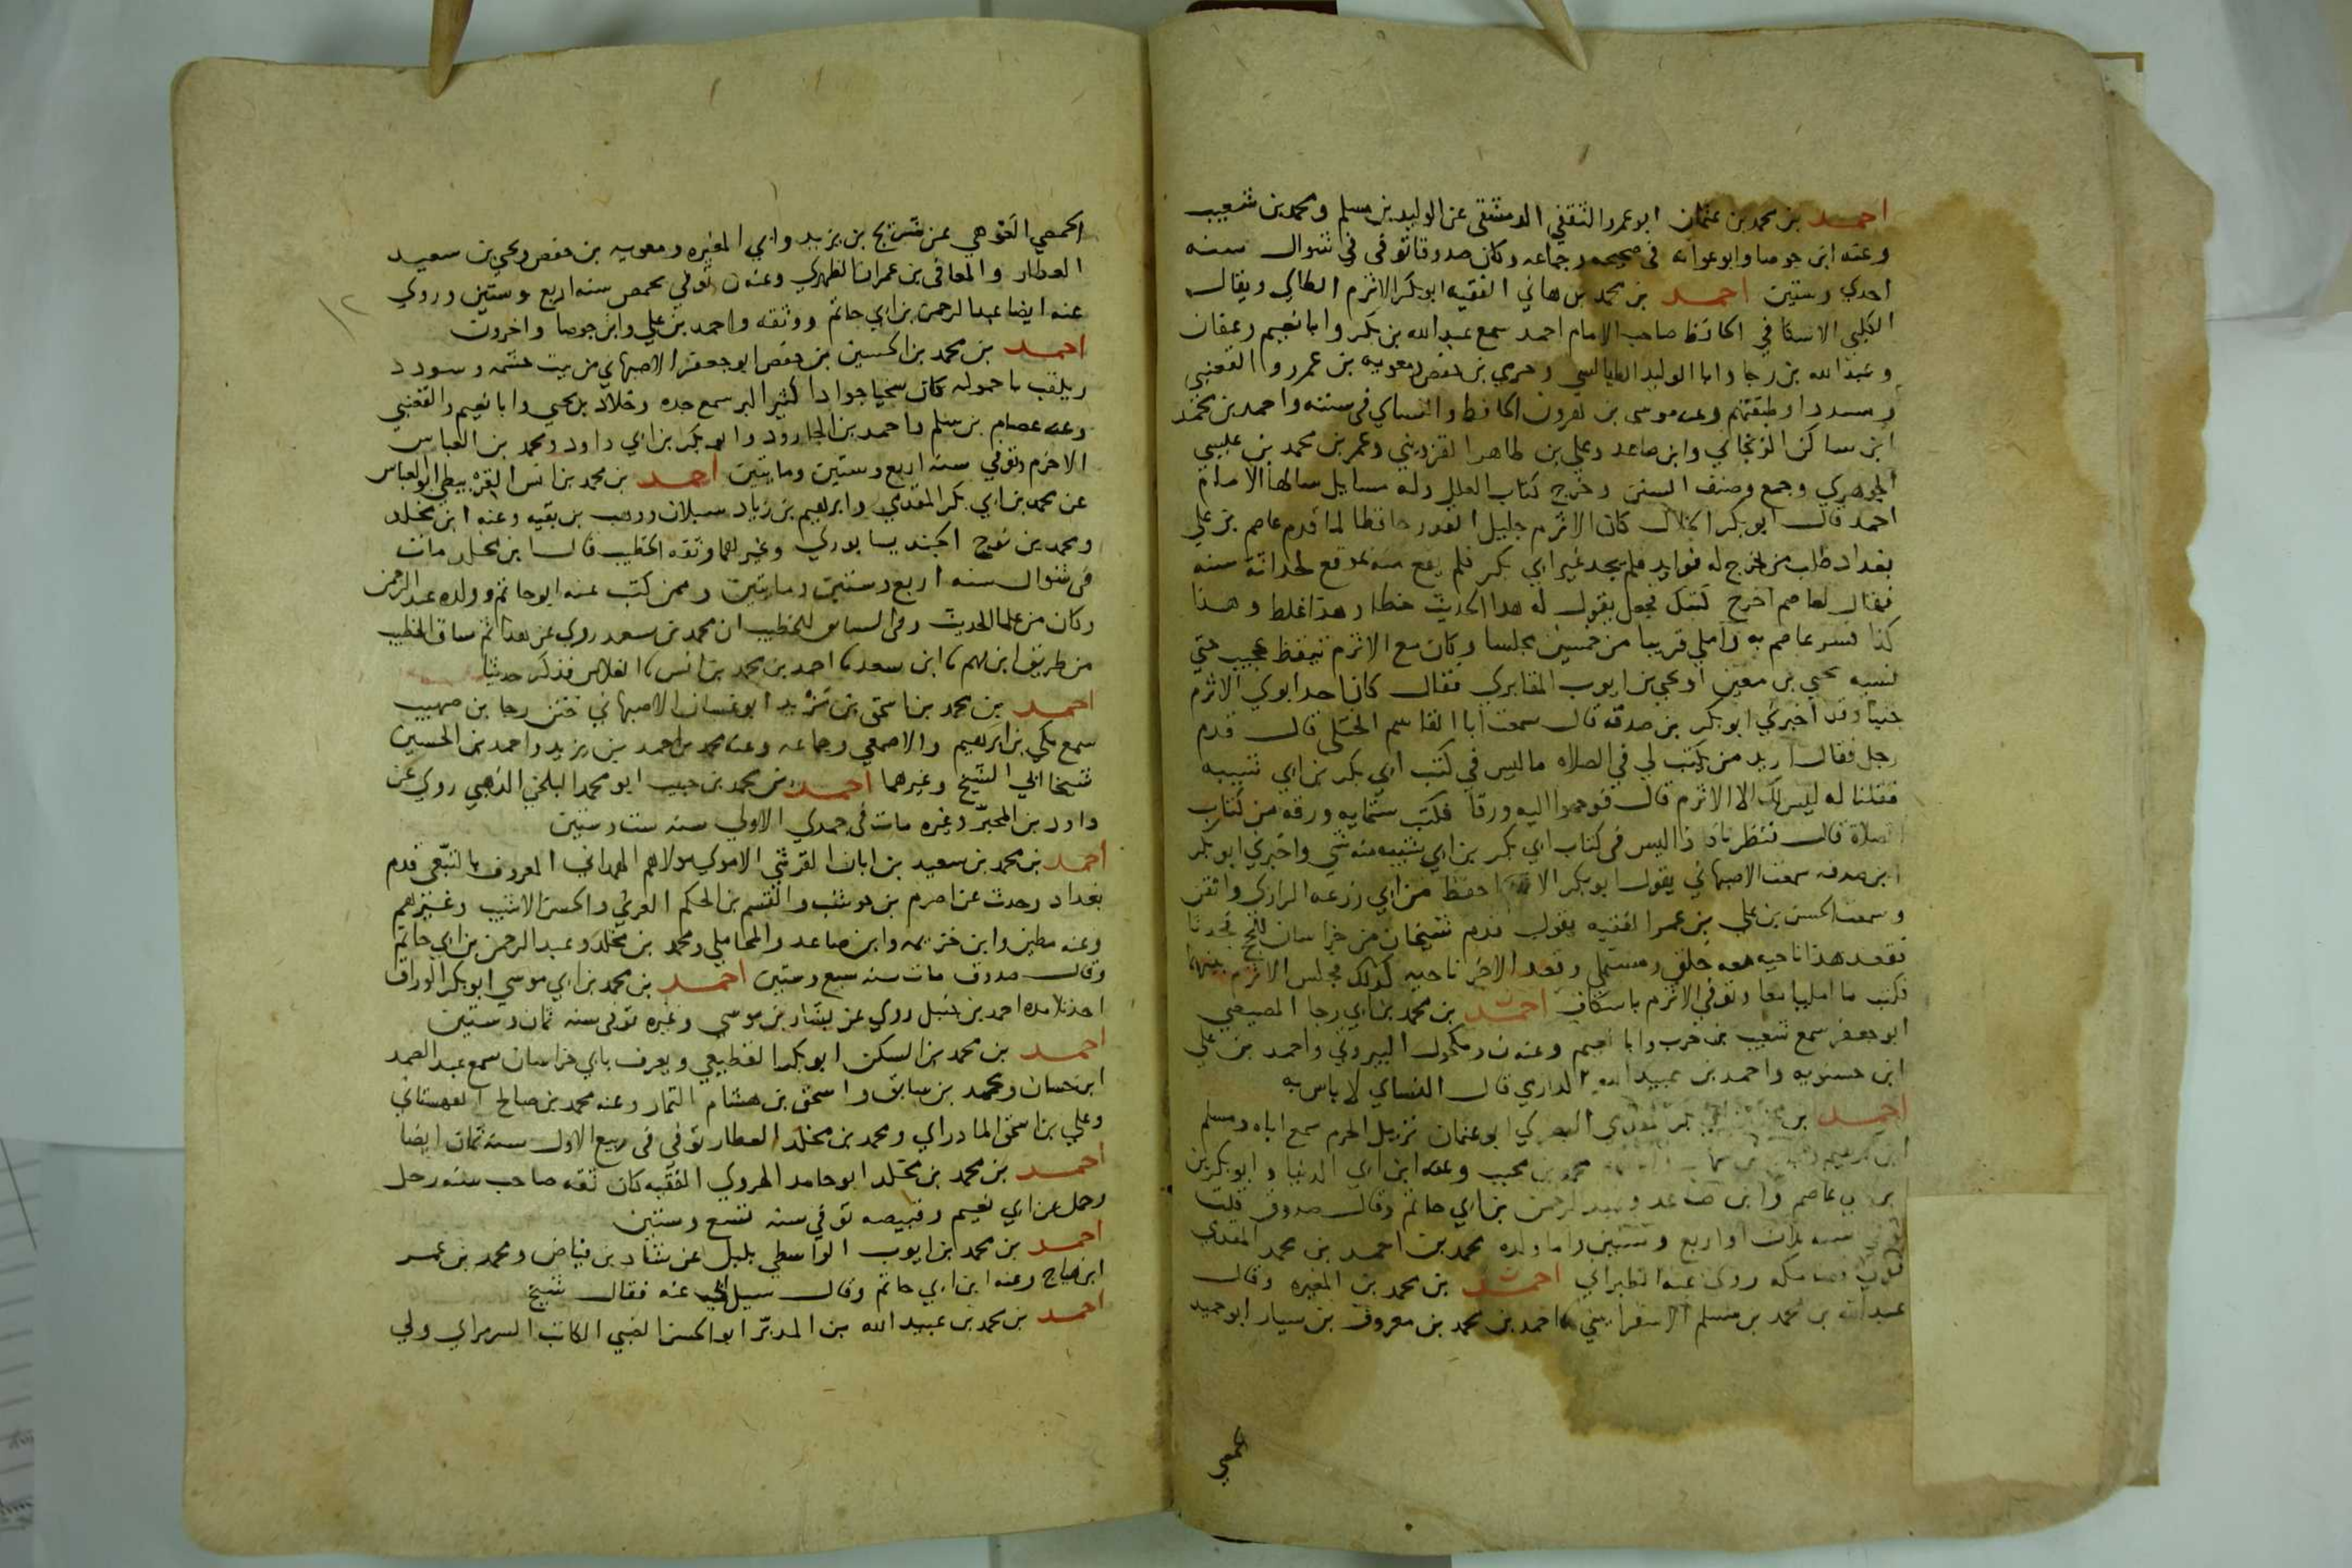 احمد بن محمد بن عثمان ابو عمرو الثقفي الدمشقي عن الوليد بن مسلم ومحمد بن شعيب
وعنه ابن جوصا وابو عوانه في صحيحه وجماعه وكان صدوقا توفي في شوال سنه
احدي وستين احمد بن محمد بن هاني الفقيه ابو بكر الاثرم الطاي ويقال
الكلبي الاسكافي الحافظ صاحب الامام احمد سمع عبد الله بن بكر وابا نعيم وعفان
وعبد الله بن رجا وابا الوليد الطيالسي وحرمي بن حفص ومعويه بن عمرو والقعنبي
ومسددا وطبقتهم وعنه موسى بن هرون الحافظ والنساي في سننه واحمد بن محمد
ابن ساكن الزنجاني وابن صاعد وعلي بن طاهر القزويني وعمر بن محمد بن عيسي
الجوهري وجمع وصنف السنن وخرج كتاب العلل وله مسايل سالها الامام
احمد قال ابو بكر الخلال كان الاثرم جليل القدر حافظا لما قدم عاصم بن علي
بغداد طلب من يخرج له فوايد فلم يجد غير ابي بكر فلم يقع منه بموقع لحداثة سنه
فقال لعاصم اخرج كتبك فجعل يقول له هذا الحديث خطا وهذا غلط وهذا
كذا فسر عاصم به واملي قريبا من خمسين مجلسا وكان مع الاثرم تيقظ عجيب حتي
نسبه يحيي بن معين او يحيي بن ايوب المقابري فقال كان احد ابوي الاثرم
جنيا وقد اخبرني ابو بكر بن صدقه قال سمعت ابا القاسم الختلي قال قدم
رجل فقال اريد من يكتب لي في الصلاه ما ليس في كتب ابي بكر بن ابي شيبه
فقلنا له ليس لك الا الاثرم قال فوجهوا اليه ورقا فكتب ستمايه ورقه من كتاب
الصلاة قال فنظرنا فاذا ليس في كتاب ابي بكر بن ابي شيبه منه شي واخبرني ابو بكر
ابن صدقه سمعت الاصبهاني يقول ابو بكر الاثرم احفظ من ابي زرعه الرازي واتقن
وسمعت الحسن بن علي بن عمر الفقيه يقول قدم شيخان من خراسان للحج فحدثا
فقعد هذا ناحيه معه خلق ومستملي وقعد الاخر ناحيه كذلك فجلس الاثرم بينهما
فكتب ما امليا معا وتوفي الاثرم باسكاف احمد بن محمد بن ابي رجا المصيصي
ابو جعفر سمع شعيب بن حرب وابا نعيم وعنه ن ومكحول البيروتي واحمد بن علي
ابن حسنويه واحمد بن عبيد الله الداري قال النساي لا باس به
احمد بن المقدمي البصري ابو عثمان نزيل الحرم سمع اباه ومسلم
ابن ابراهيم محمد بن محبب وعنه ابن ابي الدنيا وابو بكر بن
ابي عاصم وابن صاعد وعبد الرحمن بن ابي حاتم وقال صدوق قلت
توفي سنه ثلاث او اربع وستين واما ولده محمد بن احمد بن محمد المقدمي
روى عنه الطبراني احمد بن محمد بن المغيره وقال
عبد الله بن محمد بن مسلم الاسفرايني احمد بن محمد بن معروف بن سيار ابو حميد
الحمصي
الحمصي العَوْهي عن شريح بن يزيد وابي المغيره ومعويه بن حفص ويحيي بن سعيد
العطار والمعافى بن عمران الظهري وعنه ن توفي بحمص سنه اربع وستين وروي
عنه ايضا عبد الرحمن بن ابي حاتم ووثقه واحمد بن علي وابن جوصا واخرون
احمد بن محمد بن الحسين بن حفص ابو جعفر الاصبهاني من بيت حشمه وسودد
ويلقب باحمولة كان سخيا جوادا كثير البر سمع جده وخلاد بن يحيي وابا نعيم والقعنبي
وعنه عصام بن سلم واحمد بن الجارود وابو بكر بن ابي داود ومحمد بن العباس
الاخرم وتوفي سنه اربع وستين ومايتين احمد بن محمد بن انس القربيطي ابو العباس
عن محمد بن ابي بكر المقدمي وابرهيم بن زياد سبلان ووهب بن بقيه وعنه ابن مخلد
ومحمد بن نوح الجنديسابوري وغيرهما وثقه الخطيب قال ابن مخلد مات
في شوال سنه اربع وستين ومايتين وممن كتب عنه ابو حاتم وولده عبد الرحمن
وكان من علما الحديث وفي السابق للخطيب ان محمد بن سعد روي عن هذا ثم ساق الخطيب
من طريق ابن فهم ثنا ابن سعد ثنا احمد بن محمد بن انس ثنا الفلاس فذكر حديثا
احمد بن محمد بن اسحق بن يزيد ابو غسان الاصبهاني ختن رجا بن صهيب
سمع مكي بن ابرهيم والاصمعي وجماعه وعنه محمد بن احمد بن يزيد واحمد بن الحسين
شيخا ابي الشيخ وغيرهما احمد بن محمد بن حبيب ابو محمد البلخي الذهبي روي عن
داود بن المحبّر وغيره مات في جمدي الاولي سنه ست وستين
احمد بن محمد بن سعيد بن ابان القرشي الاموي مولاهم الهمداني المعروف بالتبّعي قدم
بغداد وحدث عن اصرم بن حوشب والقسم بن الحكم العرني والحسن الاشيب وغيرهم
وعنه مطين وابن خزيمه وابن صاعد والمحاملي ومحمد بن مخلد وعبد الرحمن بن ابي حاتم
وقال صدوق مات سنه سبع وستين احمد بن محمد بن ابي موسي ابو بكر الوراق
احد تلامذه احمد بن حنبل روي عن بشار بن موسي وغيره توفى سنه ثمان وستين
احمد بن محمد بن السكن ابو بكر القطيعي ويعرف بابي خراسان سمع عبد الصمد
ابن حسان ومحمد بن سابق واسحق بن هشام التمار وعنه محمد بن صالح القهستاني
وعلي بن اسحق المادراي ومحمد بن مخلد العطار توفي في ربيع الاول سنه ثمان ايضا
احمد بن محمد بن مخلد ابو حامد الهروي الفقيه كان ثقه صاحب سنه رحل
وحمل عن ابي نعيم وقبيصه توفي سنه تسع وستين
احمد بن محمد بن ايوب الواسطي بلبل عن شاذ بن فياض ومحمد بن عمر
ابن هياج وعنه ابن ابي حاتم وقال سيل ابي عنه فقال شيخ
احمد بن محمد بن عبيد الله بن المدبّر ابو الحسن الضبي الكاتب السرمراي ولي